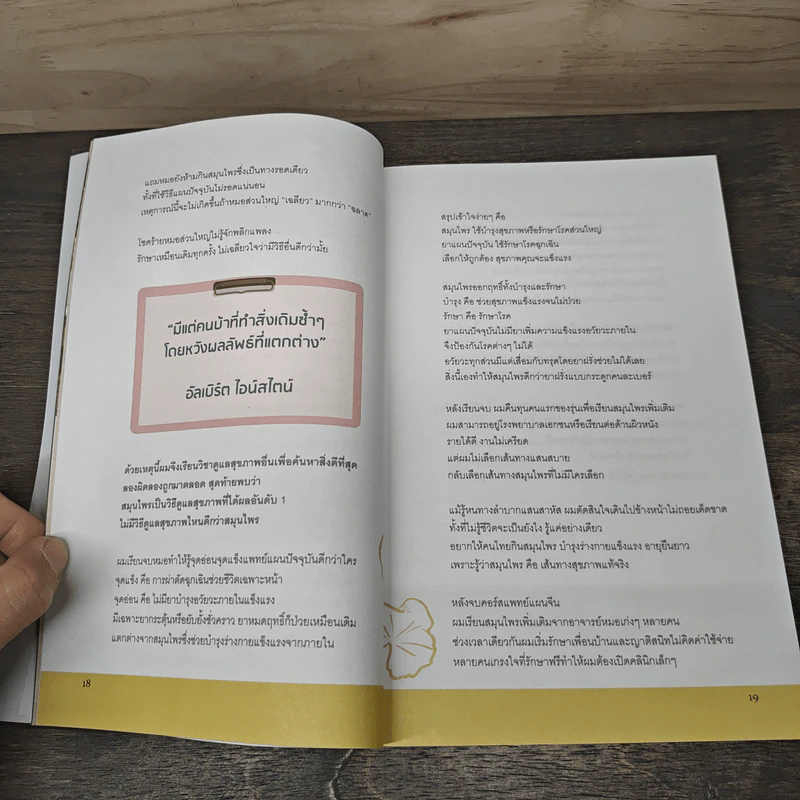 แถมหมอยังห้ามกินสมุนไพรซึ่งเป็นทางรอดเดียว
ทั้งที่ใช้วิธีแผนปัจจุบันไม่รอดแน่นอน
เหตุการณ์นี้จะไม่เกิดขึ้นถ้าหมอส่วนใหญ่ "เฉลียว" มากกว่า "ฉลาด"
โชคร้ายหมอส่วนใหญ่ไม่รู้จักพลิกแพลง
รักษาเหมือนเดิมทุกครั้ง ไม่เฉลียวใจว่ามีวิธีอื่นดีกว่ามั้ย
"มีแต่คนบ้าที่ทำสิ่งเดิมซ้ำๆ
โดยหวังผลลัพธ์ที่แตกต่าง"
อัลเบิร์ต ไอน์สไตน์
ด้วยเหตุนี้ผมจึงเรียนวิชาดูแลสุขภาพอื่นเพื่อค้นหาสิ่งดีที่สุด
ลองผิดลองถูกมาตลอด สุดท้ายพบว่า
สมุนไพรเป็นวิธีดูแลสุขภาพที่ได้ผลอันดับ 1
ไม่มีวิธีดูแลสุขภาพไหนดีกว่าสมุนไพร
ผมเรียนจบหมอทำให้รู้จุดอ่อนจุดแข็งแพทย์แผนปัจจุบันดีกว่าใคร
จุดแข็ง คือ การผ่าตัดฉุกเฉินช่วยชีวิตเฉพาะหน้า
จุดอ่อน คือ ไม่มียาบำรุงอวัยวะภายในแข็งแรง
มีเฉพาะยากระตุ้นหรือยับยั้งชั่วคราว ยาหมดฤทธิ์ก็ป่วยเหมือนเดิม
แตกต่างจากสมุนไพรซึ่งช่วยบำรุงร่างกายแข็งแรงจากภายใน
18
สรุปเข้าใจง่ายๆ คือ
สมุนไพร ใช้บำรุงสุขภาพหรือรักษาโรคส่วนใหญ่
ยาแผนปัจจุบัน ใช้รักษาโรคฉุกเฉิน
เลือกให้ถูกต้อง สุขภาพคุณจะแข็งแรง
สมุนไพรออกฤทธิ์ทั้งบำรุงและรักษา
บำรุง คือ ช่วยสุขภาพแข็งแรงจนไม่ป่วย
รักษา คือ รักษาโรค
ยาแผนปัจจุบันไม่มียาเพิ่มความแข็งแรงอวัยวะภายใน
จึงป้องกันโรคต่างๆ ไม่ได้
อวัยวะทุกส่วนมีแต่เสื่อมกับทรุดโดยยาฝรั่งช่วยไม่ได้เลย
สิ่งนี้เองทำให้สมุนไพรดีกว่ายาฝรั่งแบบกระดูกคนละเบอร์
หลังเรียนจบ ผมคืนทุนคนแรกของรุ่นเพื่อเรียนสมุนไพรเพิ่มเติม
ผมสามารถอยู่โรงพยาบาลเอกชนหรือเรียนต่อด้านผิวหนัง
รายได้ดี งานไม่เครียด
แต่ผมไม่เลือกเส้นทางแสนสบาย
กลับเลือกเส้นทางสมุนไพรที่ไม่มีใครเลือก
แม้รู้หนทางลำบากแสนสาหัส ผมตัดสินใจเดินไปข้างหน้าไม่ถอยเด็ดขาด
ทั้งที่ไม่รู้ชีวิตจะเป็นยังไง รู้แค่อย่างเดียว
อยากให้คนไทยกินสมุนไพร บำรุงร่างกายแข็งแรง อายุยืนยาว
เพราะรู้ว่าสมุนไพร คือ เส้นทางสุขภาพแท้จริง
หลังจบคอร์สแพทย์แผนจีน
ผมเรียนสมุนไพรเพิ่มเติมจากอาจารย์หมอเก่งๆ หลายคน
ช่วงเวลาเดียวกันผมเริ่มรักษาเพื่อนบ้านและญาติสนิทไม่คิดค่าใช้จ่าย
หลายคนเกรงใจที่รักษาฟรีทำให้ผมต้องเปิดคลินิกเล็กๆ
19